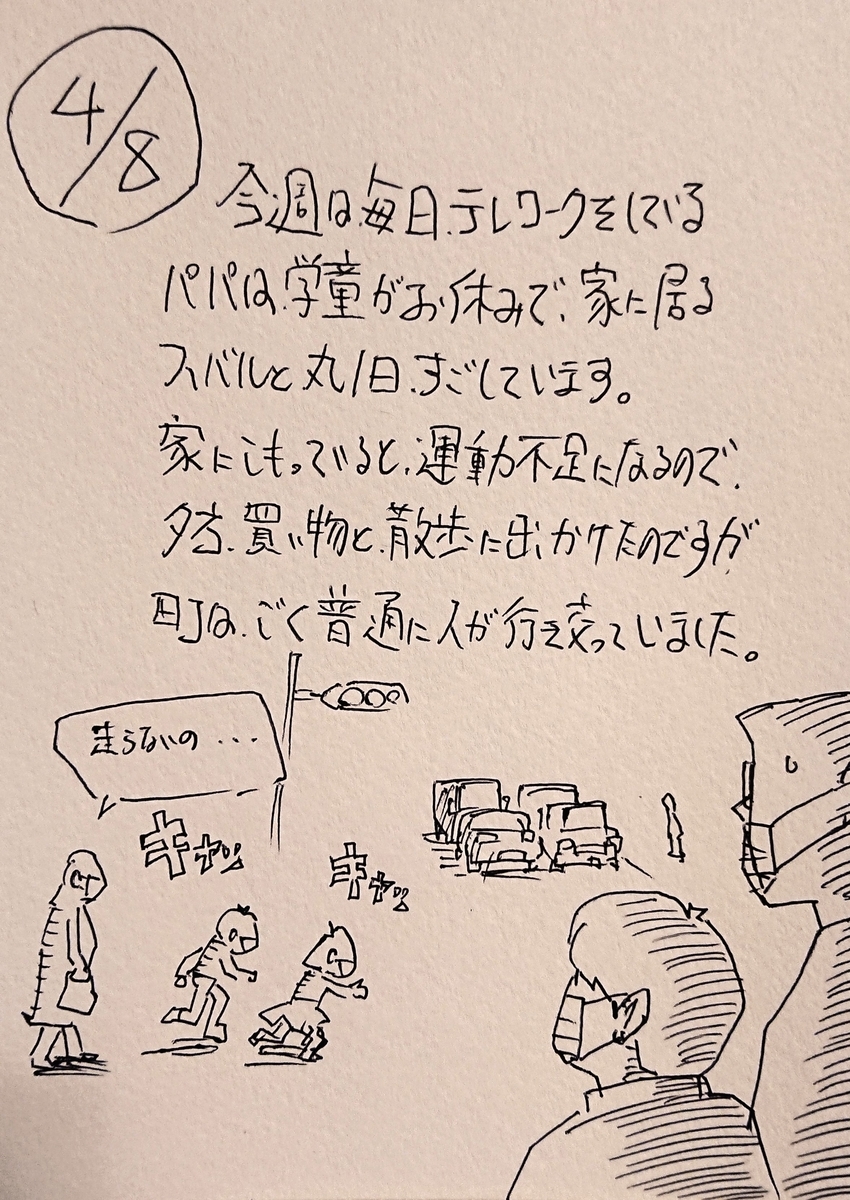 4/8
今週は毎日、テレワークをしている
パパは、学童がお休みで、家に居る
スバルと丸1日、すごしています。
家にこもっていると、運動不足になるので、
夕方、買い物と、散歩に出かけたのですが
町は、ごく普通に人が行き交っていました。
走らないの・・・
キャッ
キャッ